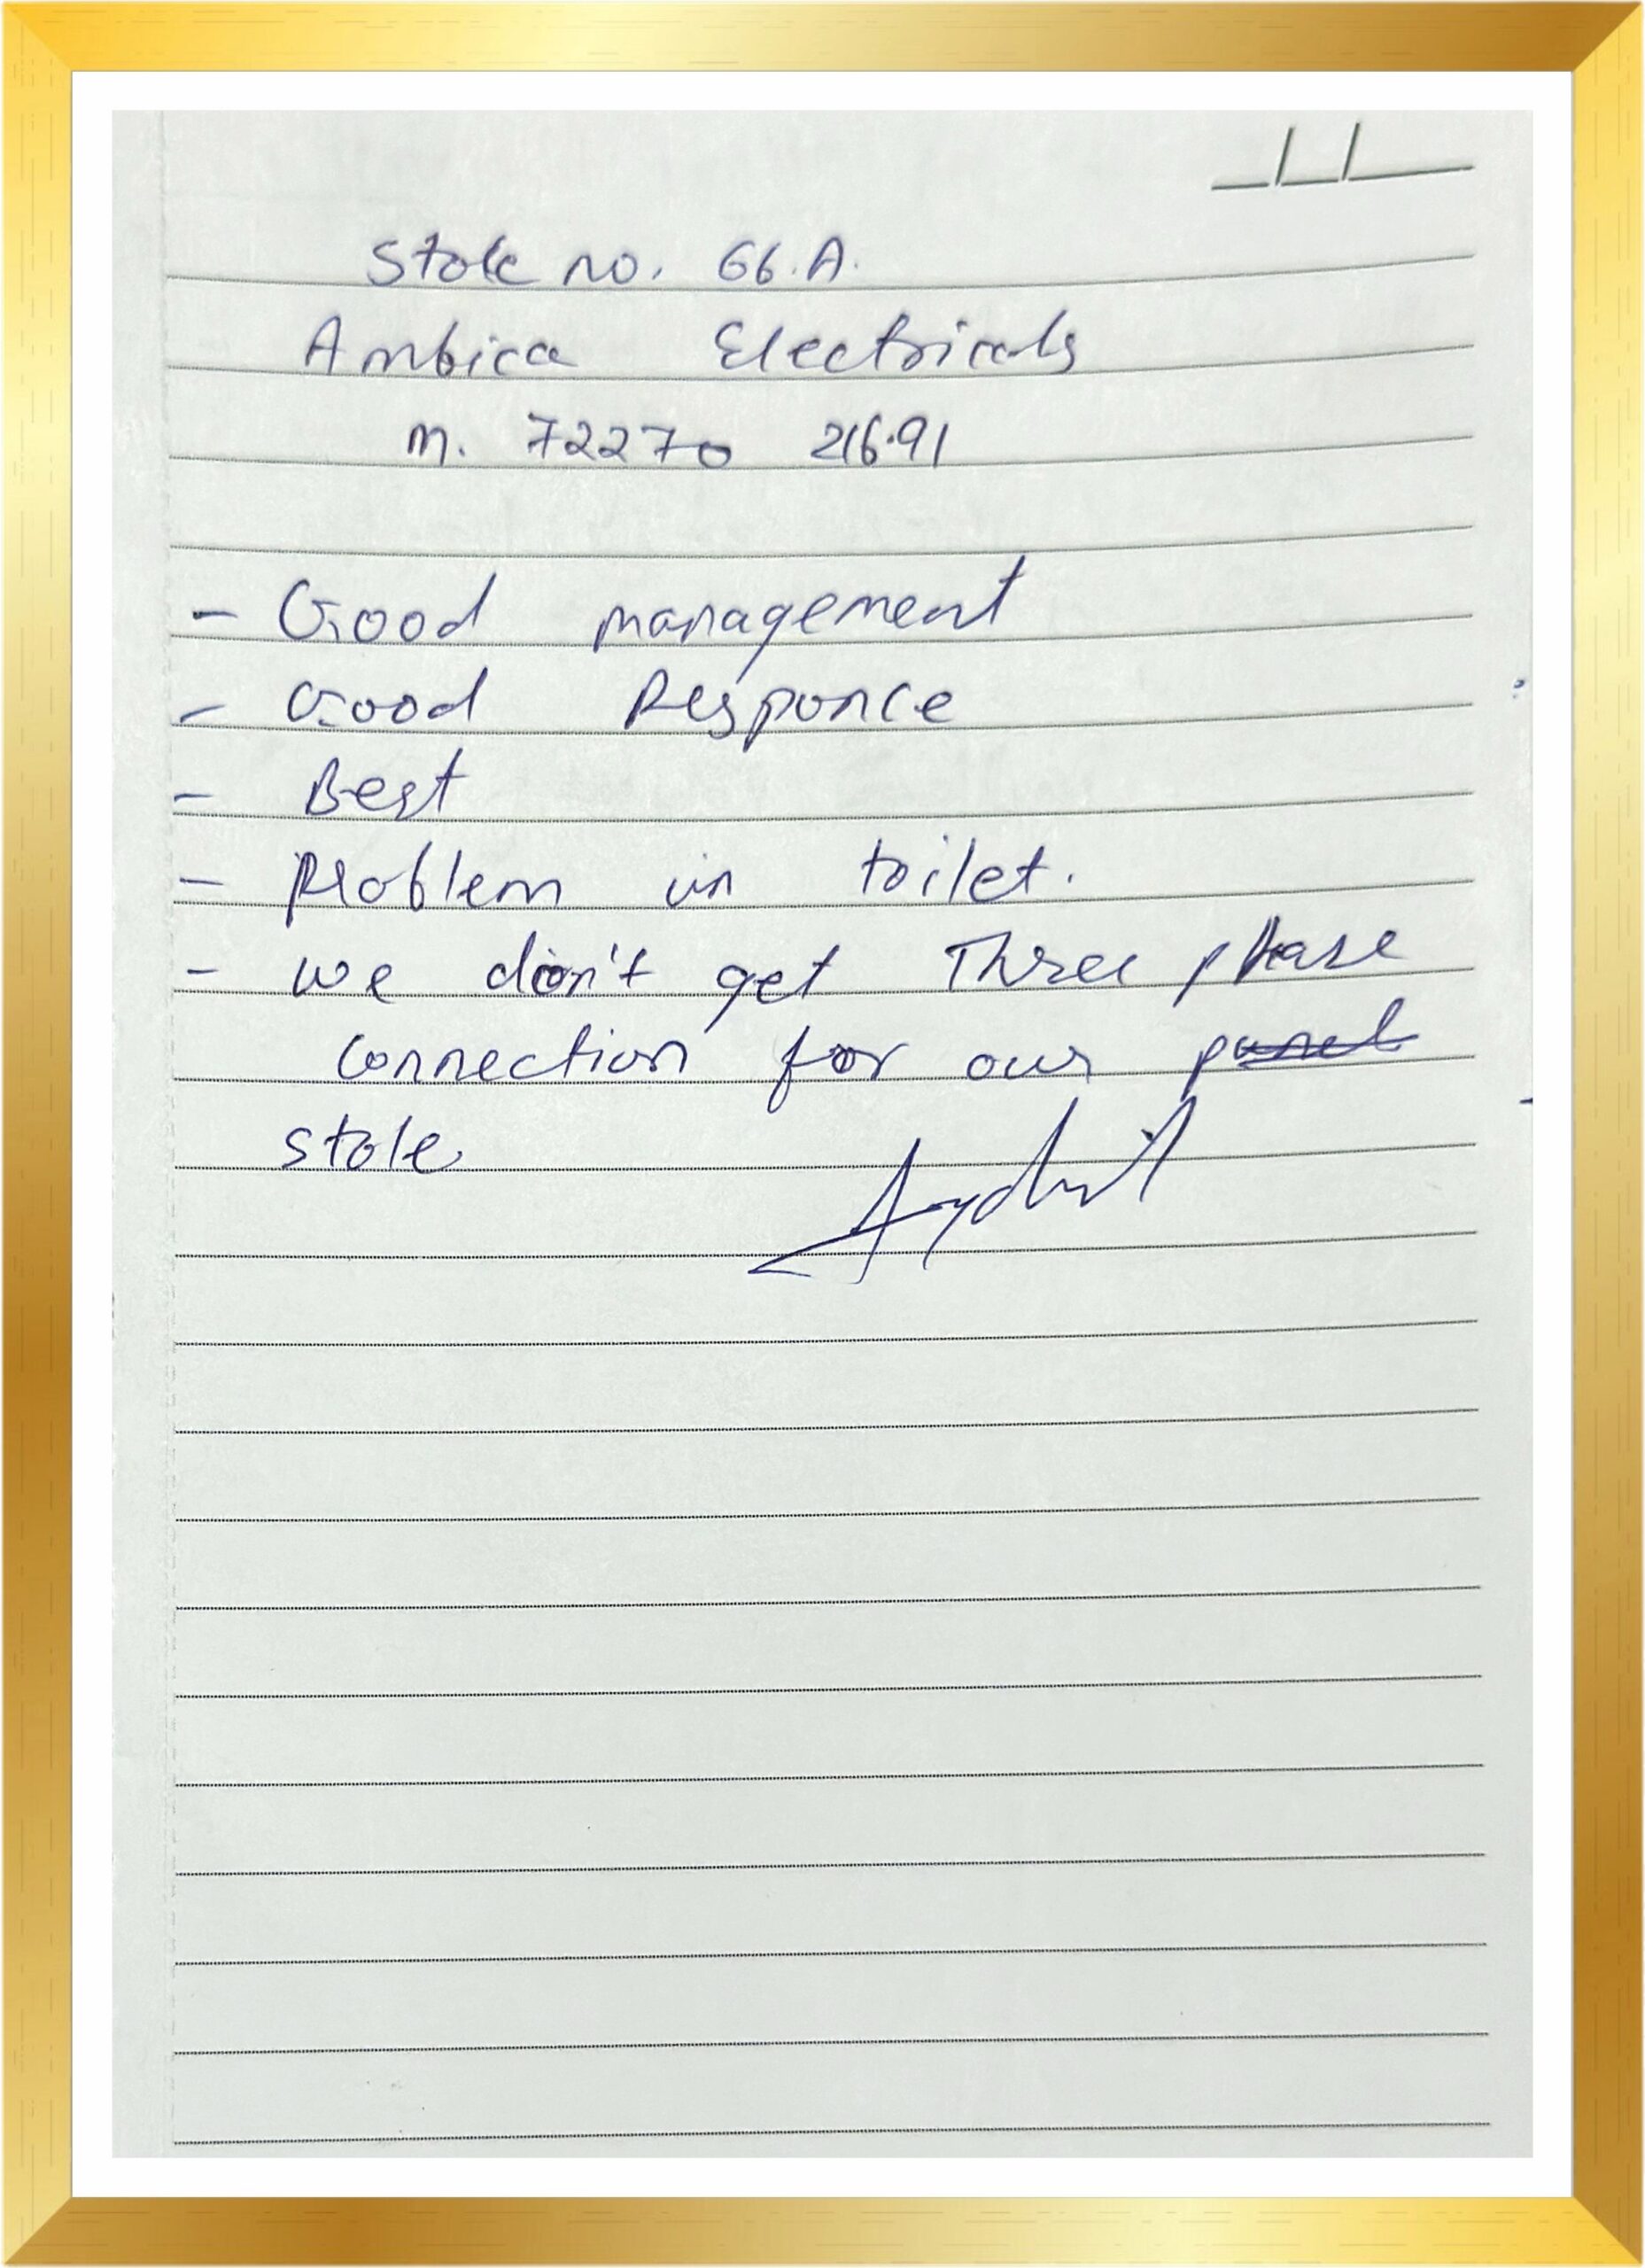 Stole no. 66.A.
Ambica Electricals
M. 72270 21691
- Good management
- Good Responce
- Best
- Problem in toilet.
- we don't get Three phase
connection for our panel
stole